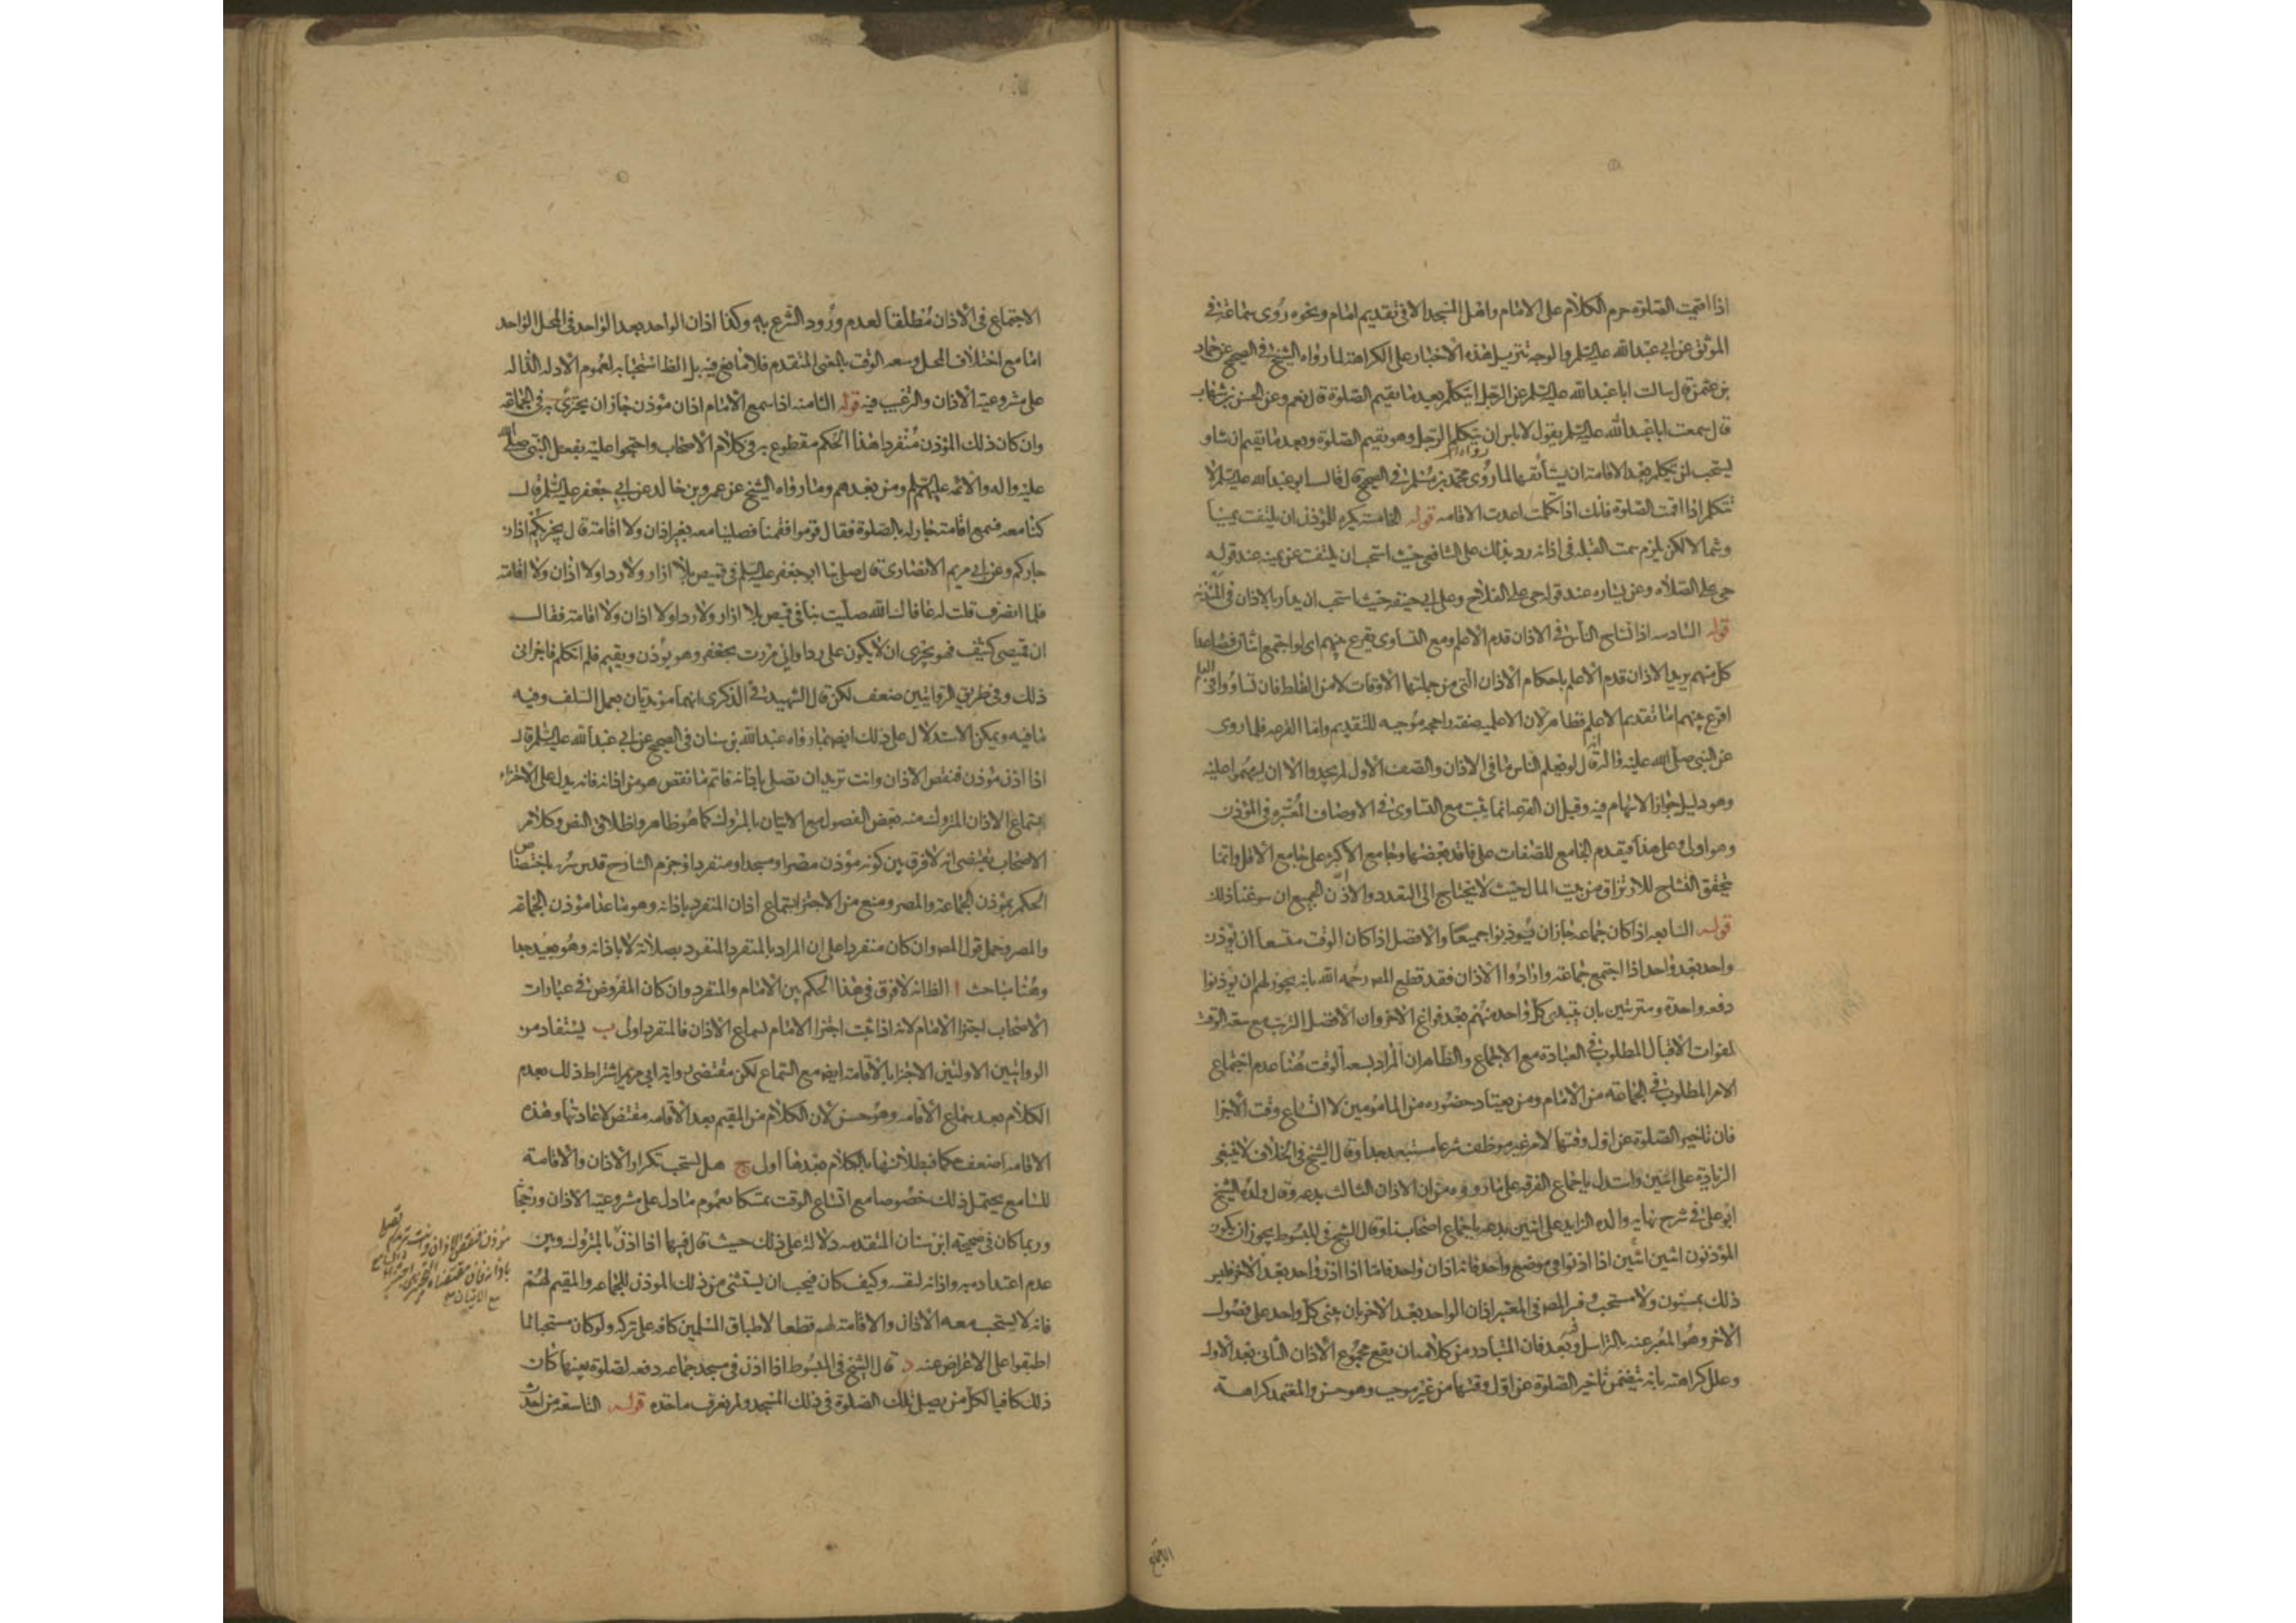 اذا اقيمت الصلوة حرم الكلام على الامام واهل المسجد الا فى تقديم امام ونحوه روى سماعة فى
الموثق عن ابى عبدالله عليه السلم والوجه تنزيل هذه الاخبار على الكراهة لما رواه الشيخ فى الصحيح عن حماد
بن عثمن قال سالت اباعبدالله عليه السلم عن الرجل ايتكلم بعد ما يقيم الصلوة قال نعم وعن الحسن بن شهاب
قال سمعت اباعبدالله عليه السلم يقول لا باس ان يتكلم الرجل وهو يقيم الصلوة وبعد ما يقيم ان شاو
يستحب لمن تكلم بعد الاقامة ان يستأنفها لما رواه محمد بن مسلم فى الصحيح قال قال ابو عبدالله عليه السلم لا
تتكلم اذا اقمت الصلوة فانك اذا تكلمت اعدت الاقامه قوله الخامسة يكره للمؤذن ان يلتفت يمينا
وشمالا لكن يلزم سمت القبله فى اذانه رد بذلك على الشافعى حيث استحب ان يلتفت عن يمينه عند قوله
حى على الصلاه وعن يساره عند قوله حى على الفلاح وعلى ابى حنيفه حيث استحب ان يدار بالاذان فى المئذنه
قوله السادسه اذا تشاح الناس فى الاذان قدم الاعلم ومع التساوى يقرع بينهم اى لو اجتمع اثنان فصاعدا
كل منهم يريد الاذان قدم الاعلم باحكام الاذان التى من جملتها الاوقات لامن الغلط فان تساووا فى العلم
اقرع بينهم اما تقديم الاعلم فظاهر لان الاعلميه صفه راجحه موجبه للتقديم واما القرعه فلما روى
عن النبى صلى الله عليه واله انه قال لو يعلم الناس ما فى الاذان والصف الاول ثم لم يجدوا الا ان يستهموا عليه
وهو دليل جواز الاستهام فيه وقيل ان القرعه انما يثبت مع التساوى فى الاوصاف المعتبره فى المؤذن
وهو اولى وعلى هذا فيقدم الجامع للصفات على فاقد بعضها وجامع الاكثر على جامع الاقل وانما
يتحقق التشاح للارتزاق من بيت المال حيث لا يحتاج الى التعدد والا اذن الجميع ان سوغنا ذلك
قوله السابعه اذا كان جماعه جاز ان يؤذنوا جميعا والافضل اذا كان الوقت متسعا ان يؤذن
واحد بعد واحد اذا اجتمع جماعة وارادوا الاذان فقد قطع المصـ رحمه الله بانه يجوز لهم ان يؤذنوا
دفعه واحدة ومترتبين بان يبتدى كل واحد منهم بعد فراغ الاخر وان الافضل الترتيب مع سعة الوقت
لفوات الاقبال المطلوب فى العبادة مع الاجتماع والظاهر ان المراد بسعة الوقت هنا عدم اجتماع
الامر المطلوب فى الجماعه من الامام ومن يعتاد حضوره من المامومين لا اتساع وقت الاجزا
فان تاخير الصلوة عن اول وقتها لامر غير موظف شرعا مستبعد جدا وقال الشيخ فى الخلاف لا ينبغى
الزيادة على اثنين واستدل باجماع الفرقه على ما رووه من ان الاذان الثالث بدعه وقال ولده الشيخ
ابو على فى شرح نهايه والده الزايد على اثنين بدعه باجماع اصحابنا وقال الشيخ فى المبسوط يجوز ان يكون
المؤذنون اثنين اثنين اذا اذنوا فى موضع واحد فانه اذان واحد فاما اذا اذن واحد بعد الاخر فليس
ذلك بمسنون ولا مستحب وفسر المصـ فى المعتبر اذان الواحد بعد الاخر بان يبنى كل واحد على فصول
الاخر وهو المعبر عنه بالتراسل وفيه بعد فان المتبادر من كلامه ان يقع مجموع الاذان الثانى بعد الاول
وعلل كراهته بانه يتضمن تاخير الصلوة عن اول وقتها من غير موجب وهو حسن والمعتمد كراهة
الاجتماع
الاجتماع فى الاذان مطلقا لعدم ورود الشرع به وكذا اذان الواحد بعد الواحد فى المحل الواحد
اما مع اختلاف المحل وسعه الوقت بالمعنى المتقدم فلا مانع فيه بل الظ استحبابه لعموم الادله الداله
على مشروعيه الاذان والترغيب فيه قوله الثامنه اذا سمع الامام اذان مؤذن جاز ان يجتزئ به فى الجماعة
وان كان ذلك المؤذن منفردا هذا الحكم مقطوع به فى كلام الاصحاب واحتجوا عليه بفعل النبى صلى الله
عليه واله والائمه عليهم السلم ومن بعدهم وما رواه الشيخ عن عمرو بن خالد عن ابى جعفر عليه السلم قال
كنا معه فسمع اقامة جار له بالصلوة فقال قوموا فقمنا فصلينا معه بغير اذان ولا اقامة قال يجزيكم اذان
جاركم وعن ابى مريم الانصارى قال صلى بنا ابو جعفر عليه السلم فى قميص بلا ازار ولا ردا ولا اذان ولا اقامة
فلما انصرف قلت له عافاك الله صليت بنا فى قميص بلا ازار ولا ردا ولا اذان ولا اقامة فقال
ان قميصى كثيف فهو يجزى ان لا يكون على ردا وانى مررت بجعفر وهو يؤذن ويقيم فلم اتكلم فاجزانى
ذلك وفى طريق الروايتين ضعف لكن قال الشهيد فى الذكرى انهما مؤيدتان بعمل السلف وفيه
ما فيه ويمكن الاستدلال على ذلك ايضا بما رواه عبدالله بن سنان فى الصحيح عن ابى عبدالله عليه السلم قال
اذا اذن مؤذن فنقص الاذان وانت تريد ان تصلى باذانه فاتم ما نقص هو من اذانه فانه يدل على الاجتزاء
بسماع الاذان المتروك منه بعض الفصول مع الاتيان بالمتروك كما هو ظاهر واطلاق النص وكلام
الاصحاب يقتضى انه لا فرق بين كونه مؤذن مصر او مسجد او منفردا وجزم الشارح قدس سره باختصاص
الحكم بمؤذن الجماعة والمصر ومنع من الاجتزا بسماع اذان المنفرد باذانه وهو ما عدا مؤذن الجماعة
والمصر وحمل قول المصـ وان كان منفردا على ان المراد بالمنفرد المنفرد بصلاته لا باذانه وهو بعيد جدا
وهنا مباحث ا الظ انه لا فرق فى هذا الحكم بين الامام والمنفرد وان كان المفروض فى عبارات
الاصحاب اجتزا الامام لانه اذا ثبت اجتزا الامام بسماع الاذان فالمنفرد اولى ب يستفاد من
الروايتين الاولتين الاجتزا بالاقامة ايضا مع السماع لكن مقتضى رواية ابى مريم اشتراط ذلك بعدم
الكلام بعد سماع الاقامه وهو حسن لان الكلام من المقيم بعد الاقامه مقتض لاعادتها وهذه
الاقامه اضعف حكما فبطلانها بالكلام بعدها اولى ج هل يستحب تكرار الاذان والاقامة
للسامع يحتمل ذلك خصوصا مع اتساع الوقت تمسكا بعموم ما دل على مشروعيه الاذان ورجحا
وربما كان فى صحيحه ابن سنان المتقدمه دلالة على ذلك حيث قال فيها اذا اذن بالمتروك وبين
عدم اعتداده به واذانه لنفسه وكيف كان فيجب ان يستثنى من ذلك الموذن للجماعه والمقيم لهم
فانه لا يستحب معه الاذان والاقامة لهم قطعا لاطباق المسلمين كافه على تركه ولو كان مستحبا لما
اطبقوا على الاعراض عنه د قال الشيخ فى المبسوط اذا اذن فى مسجد جماعه دفعه لصلوة بعينها كان
ذلك كافيا لكل من يصلى تلك الصلوة فى ذلك المسجد ولم نعرف ماخذه قوله التاسعة من احدث
مؤذن فنقص الاذان وانت تريد ان تصلى
باذانه فان مقتضاه
مع الاتيان